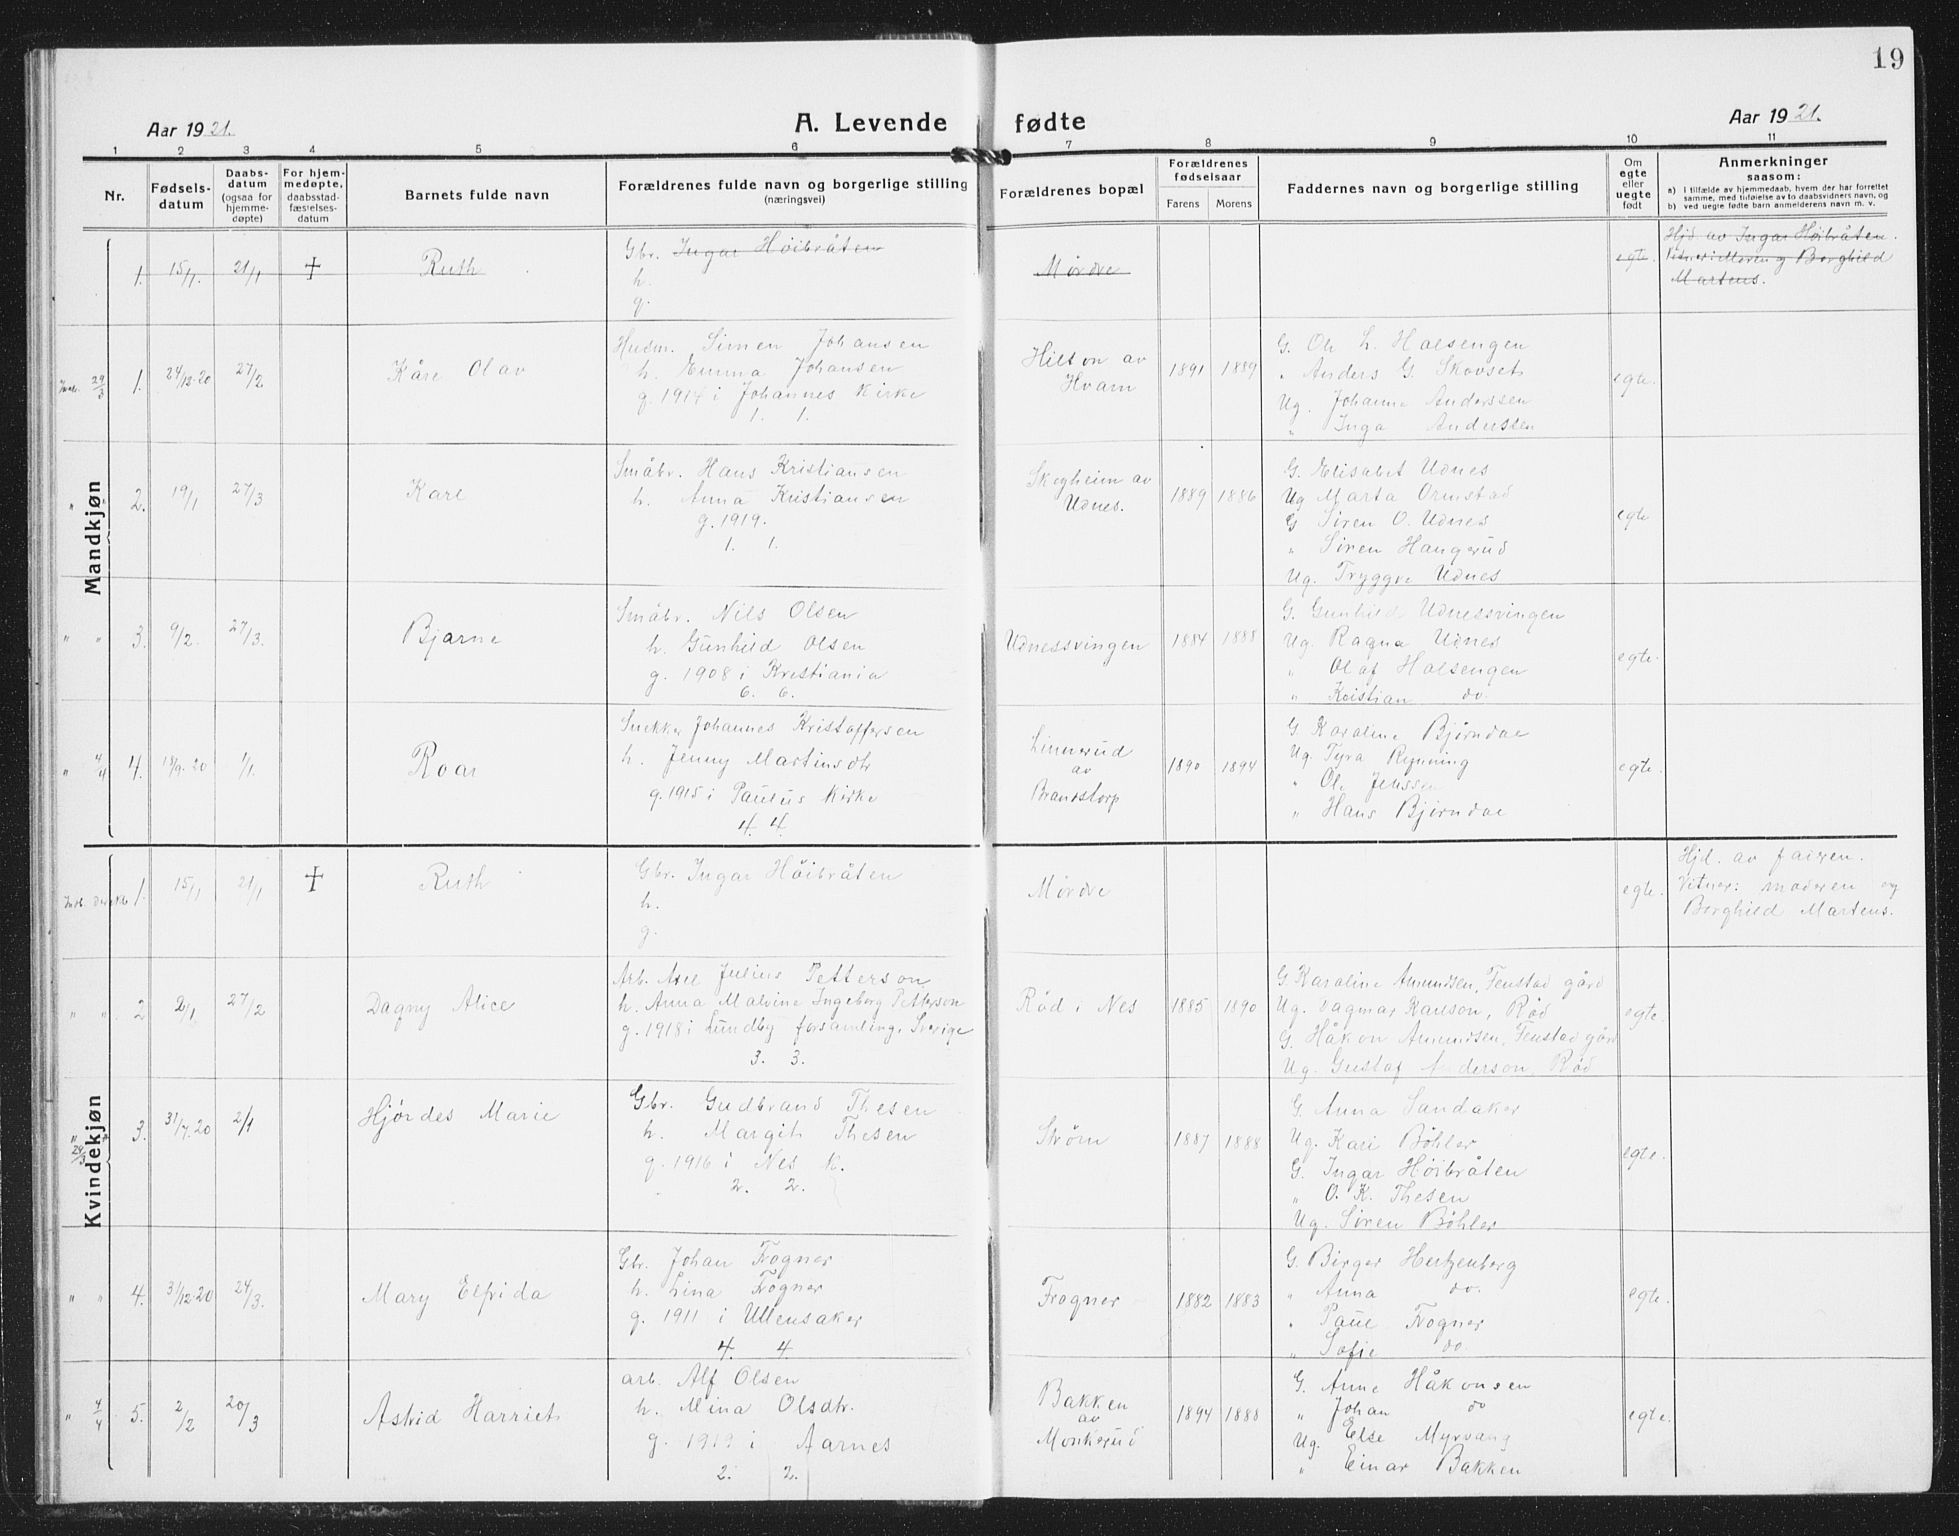 19
Aar 1921.
A. Levende fødte
Aar 1921.
1 2 3 4 5 6 7 8 9 10 11
Nr.
Fødsels-
datum
Daabs-
datum
(ogsaa for
hjemme-
døpte)
For hjem-
medøpte,
daabsstad-
fæstelses-
datum
Barnets fulde navn
Forældrenes fulde navn og borgerlige stilling
(næringsvei)
Forældrenes bopæl
Forældrenes
fødselsaar
Farens Morens
Faddernes navn og borgerlige stilling
Om
egte
eller
uegte
født
Anmerkninger
saasom:
a) i tilfælde av hjemmedaab, hvem der har forrettet
samme, med tilføielse av to daabsvidners navn, og
b) ved uegte fødte barn anmelderens navn m. v.
Mandkjøn
1. 15/1. 21/1 + Ruth
Gbr. Ingar Höibråten
h.
g.
Mørdre
egte.
Hjd. av Ingar Höibråten.
Vitner: Moren og Borghild
Martens.
24/3 1. 24/12.20 27/2 Kåre Olav
Husm. Simen Johansen
h. Emma Johansen
g. 1914 i Johannes Kirke
1. 1.
Hilton av
Hvam
1891 1889
G. Ole L. Halsengen
" Anders G. Skovset
Ug. Johanne Anderssen
" Inga Anderssen
egte.
" 2. 19/1 27/3 Kare
Småbr. Hans Kristiansen
h. Anna Kristiansen
g. 1919.
1. 1.
Skogheim av
Udnes.
1889 1886
G. Elisabet Udnes
Ug Marta Ormstad
G Søren O. Udnes
" Søren Haugerud
Ug. Tryggve Udnes
egte
" " 3. 9/2. 27/3. Bjarne
Småbr. Nils Olsen
h. Gunhild Olsen
g. 1908 i Kristiania
6. 6.
Udnessvingen
1884 1888
G. Gunhild Udnessvingen
Ug. Ragna Udnes
" Olaf Halsengen
" Kristian do.
egte.
" 4/4 4. 18/9.20 1/1. Roar
Snekker Johannes Kristoffersen
h. Jenny Martinsdtr
g. 1915 i Paulus Kirke
4. 4.
Linnerud
av
Brandstorp
1890 1894
G. Karoline Bjørndal
Ug. Tyra Rynning
" Ole Jenssen
" Hans Bjørndal
egte.
Kvindekjøn
1. 15/1 21/1 + Ruth
Gbr. Ingar Höibråten
h.
g.
Mørdre
egte.
Hjd. av faren.
Vitner: moderen og
Borghild Martens.
" " 2 2/1 27/2 Dagny Alice
Arb. Axel Julius Petterson
h. Anna Malvine Ingeborg Petterson
g. 1918 i Lundby forsamling, Sverige
3. 3.
Röd i Nes
1885 1890
G. Karoline Amundsen, Fenstad gård
Ug. Dagmar Karlson, Röd
G. Håkon Amundsen, Fenstad gård
Ug. Gustaf Anderson, Röd
egte.
" 24/3 " 3. 31/7.20 2/1 Hjördes Marie
Gbr. Gudbrand Thesen
h. Margit Thesen
g. 1916 i Nes K.
2. 2.
Strøm
1887 1888
G. Anna Sandaker
Ug. Kari Böhler
G. Ingar Höibråten
" O. K. Thesen
Ug. Søren Böhler
egte.
" " 4. 31/12.20 24/3. Mary Elfrida
Gbr. Johan Frogner
h. Lina Frogner
g. 1911 i Ullensaker
4. 4.
Frogner
1882 1883
G. Birger Hertzenberg
" Anna do.
" Paul Frogner
" Sofie do.
egte.
" 4/4 5. 2/2 20/3 Astrid Harriet
arb. Alf Olsen
h. Mina Olsdtr.
g. 1919 i Aarnes
2. 2.
Bakken
av
Monkerud
1894 1888
G. Anne Håkonsen
" Johan do
Ug. Else Myrvang
" Einar Bakken
egte.